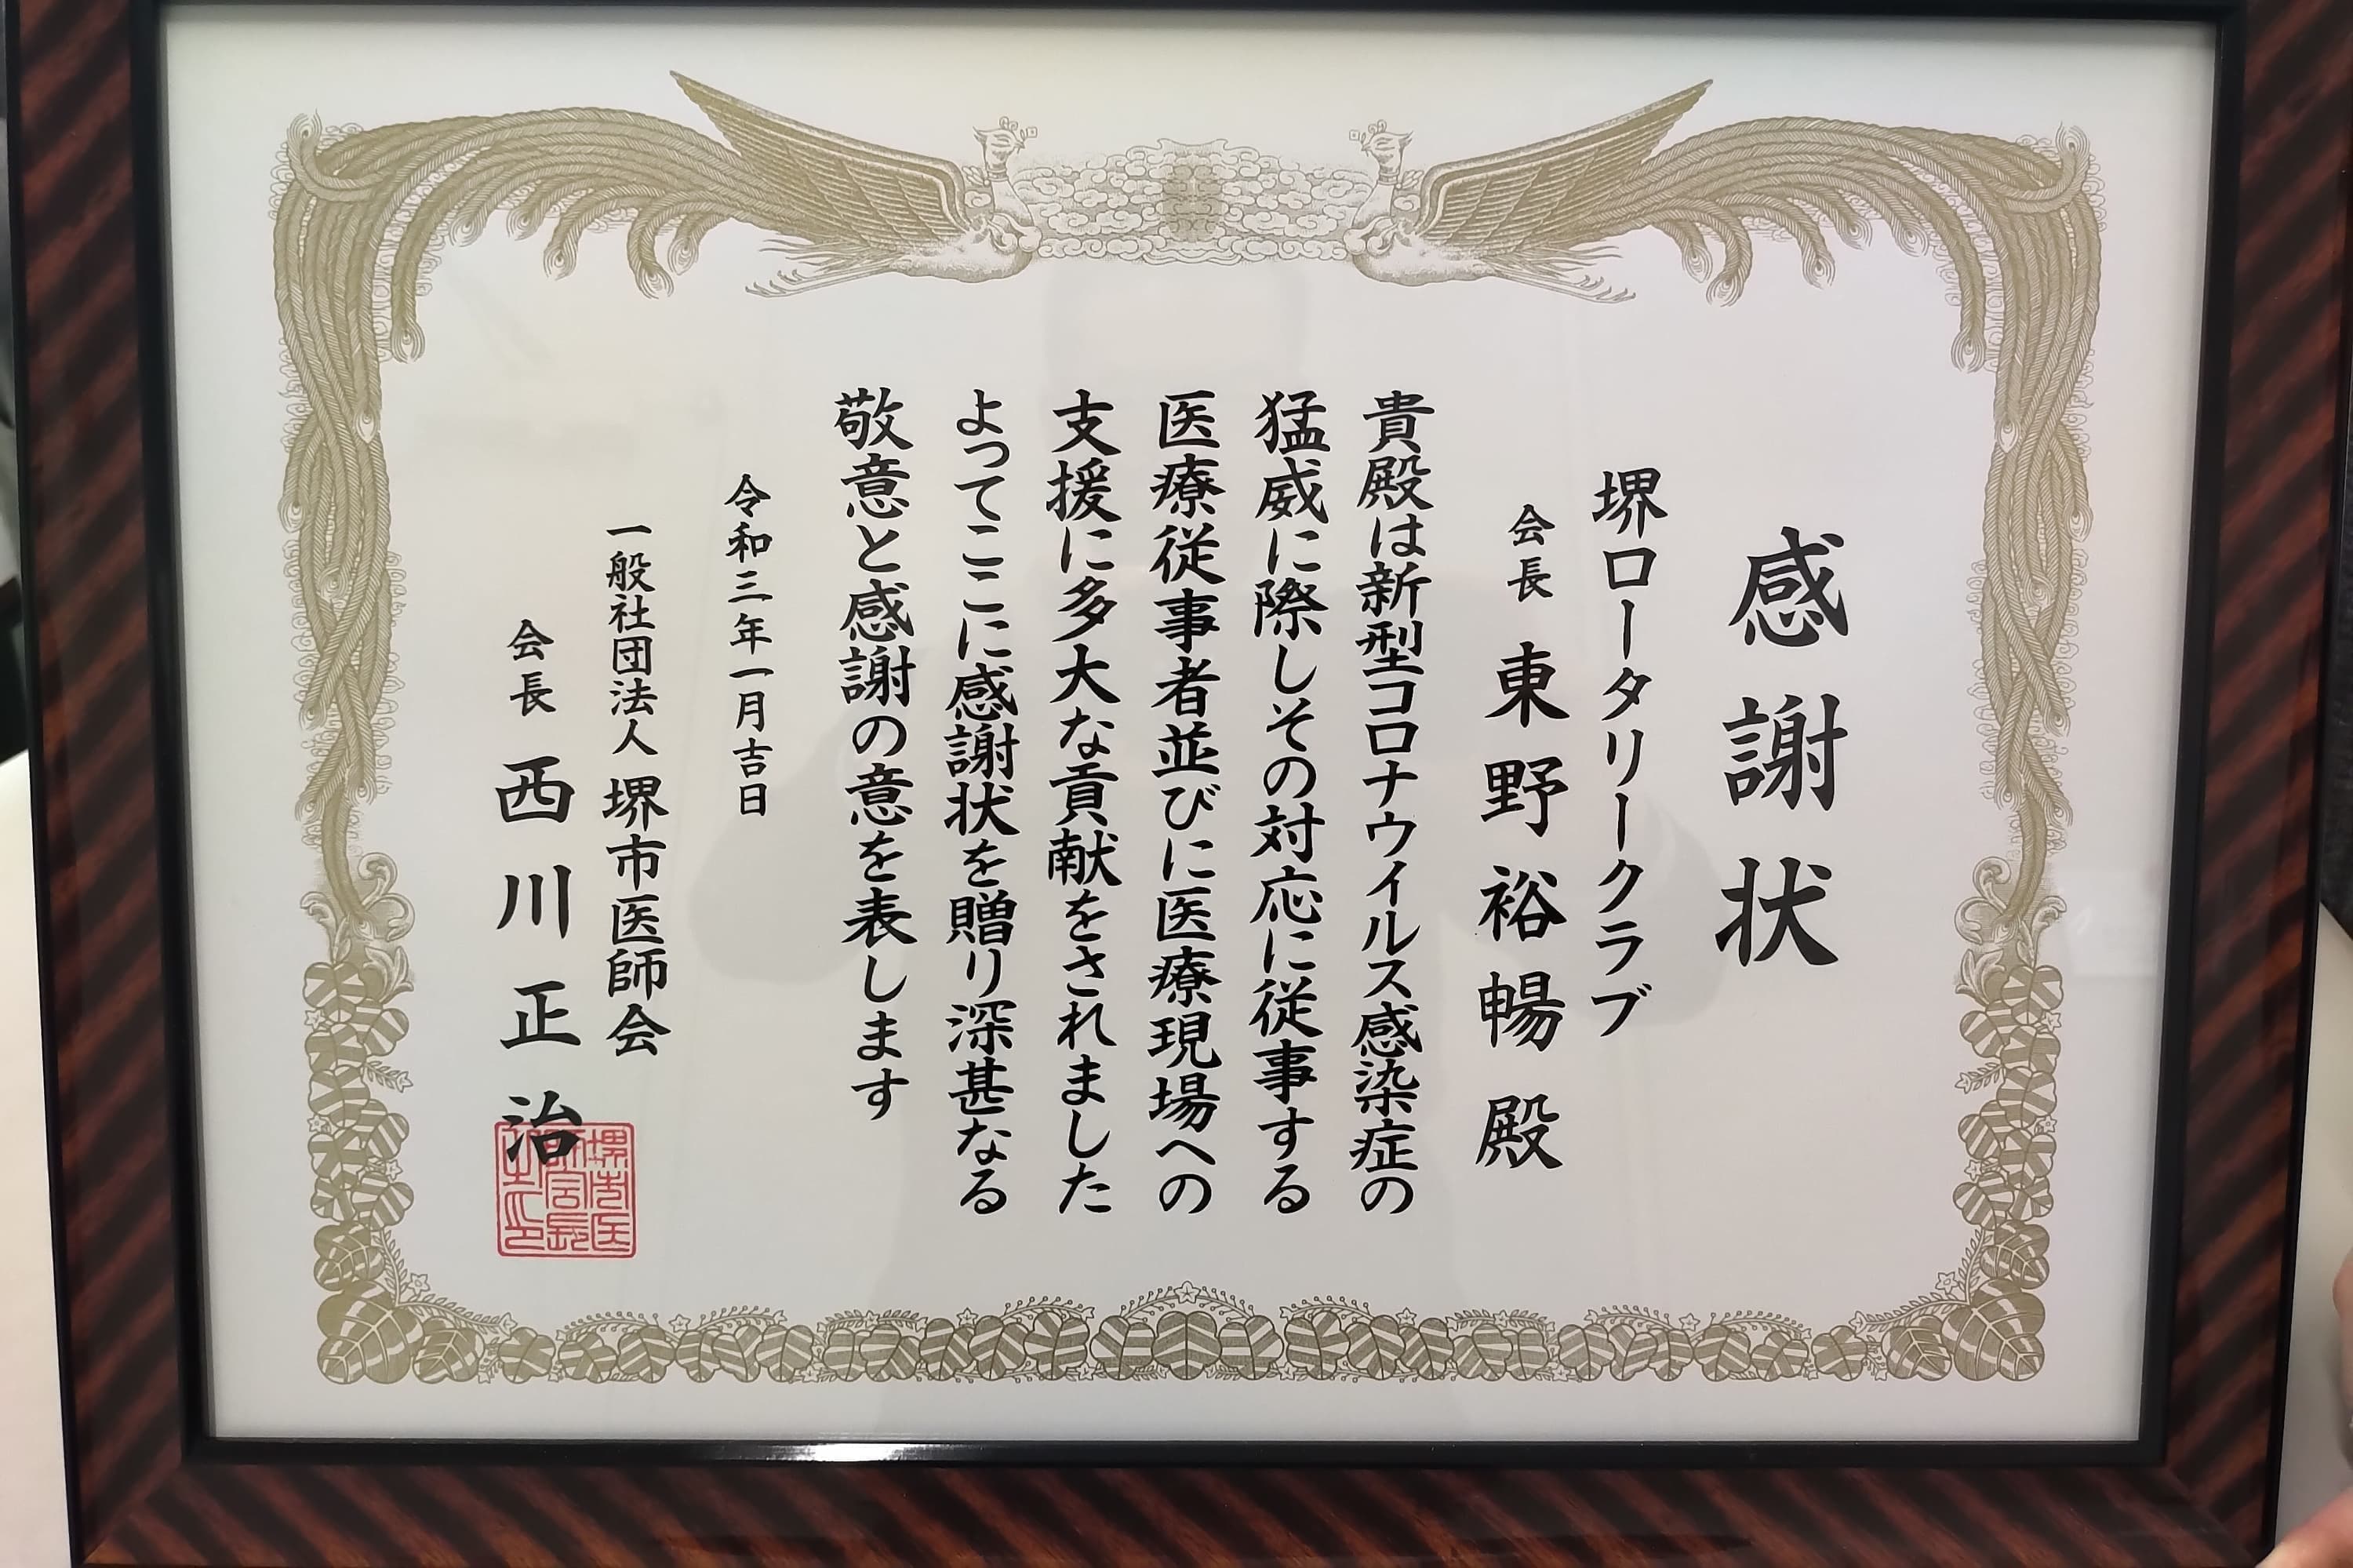 感謝状
堺ロータリークラブ
会長 東野裕暢 殿
貴殿は新型コロナウイルス感染症の
猛威に際しその対応に従事する
医療従事者並びに医療現場への
支援に多大な貢献をされました
よってここに感謝状を贈り深甚なる
敬意と感謝の意を表します
令和三年一月吉日
一般社団法人 堺市医師会
会長 西川正治
堺市医
師会長
之印